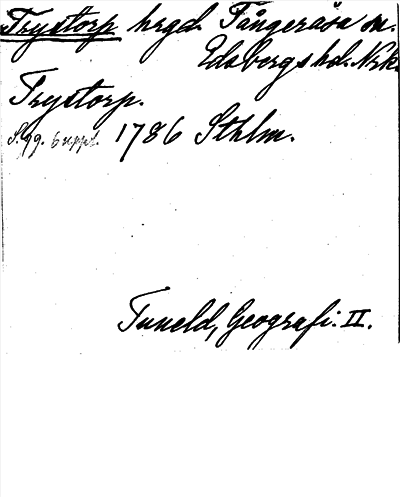 Trystorp hrgd. Tångeråsa sn.
Edsbergs hd. Nrk.
Trystorp.
S. 99. 6 uppl. 1786 Sthlm.
Tuneld, Geografi. II.